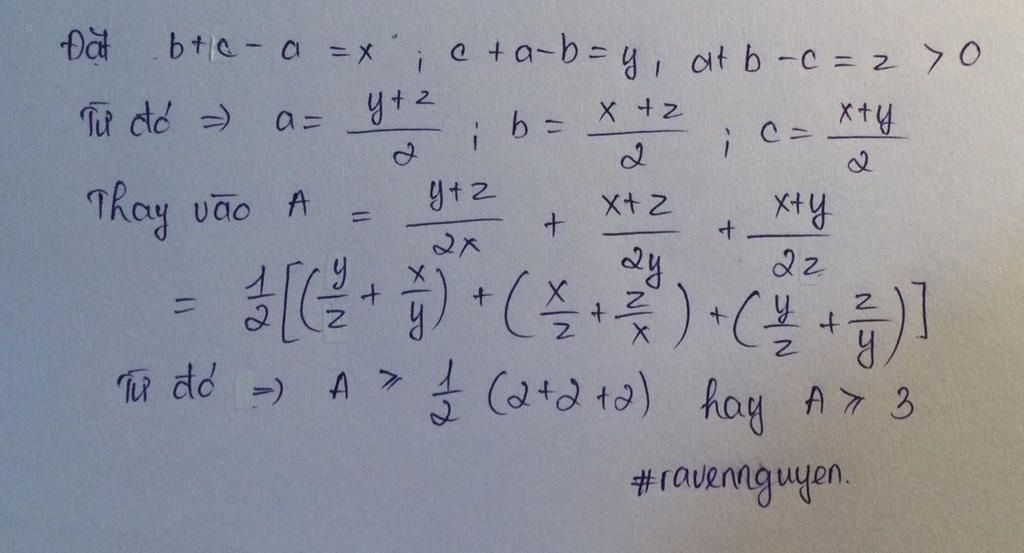 Đặt b+c-a = x ; c+a-b = y, a+b-c = z > 0
Từ đó => a = \frac{y+z}{2} ; b = \frac{x+z}{2} ; c = \frac{x+y}{2}
Thay vào A = \frac{y+z}{2x} + \frac{x+z}{2y} + \frac{x+y}{2z}
= \frac{1}{2}[(\frac{y}{z} + \frac{x}{y}) + (\frac{x}{z} + \frac{z}{x}) + (\frac{y}{z} + \frac{z}{y})]
Từ đó => A ≥ \frac{1}{2} (2+2+2) hay A ≥ 3
#ravennguyen.